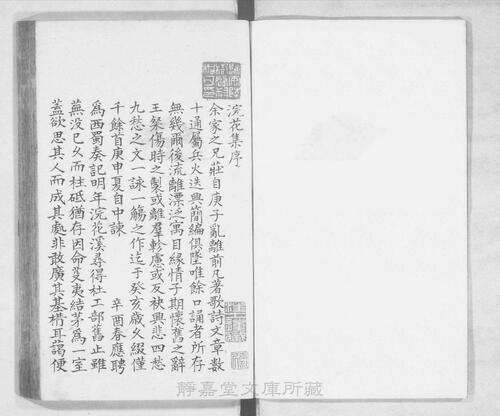 浣花集序
余家之兄莊自庚子亂離前凡著歌詩文章數
十通屬兵火迭興簡編俱墜唯餘口誦者所存
無幾爾後流離漂泛寓目緣情子期懷舊之辭
王粲傷時之製或離羣軫慮或反袂興悲四愁
九愁之文一詠一觴之作迄于癸亥歲又綴僅
千餘首庚申夏自中諫　　　辛酉春應聘
爲西蜀奏記明年浣花溪尋得杜工部舊止雖
蕪没已久而柱砥猶存因命芟夷結茅爲一室
蓋欲思其人而成其處非敢廣其基構耳藹便
靜嘉堂文庫所藏